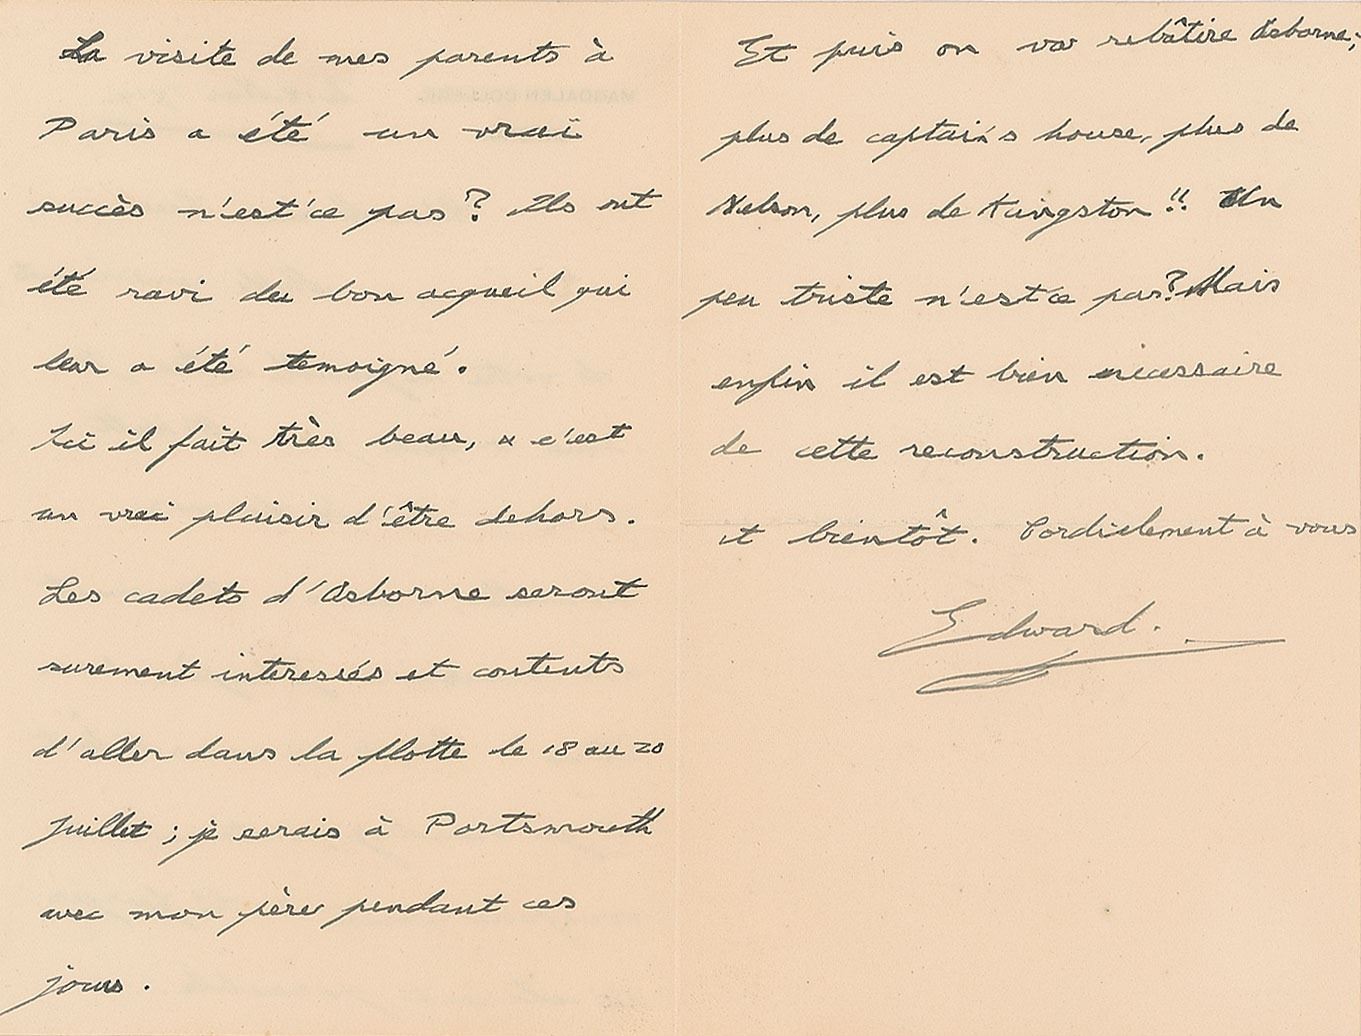 La visite de mes parents à
Paris a été un vrai
succès n'est'ce pas? Ils ont
été ravi du bon acqueil qui
leur a été temoigné.
Ici il fait très beau, & c'est
un vrai plaisir d'être dehors.
Les cadets d'Osborne seront
surement interessés et contents
d'aller dans la flotte le 18 au 20
Juillet; je serais à Portsmouth
avec mon père pendant ces
jours.
Et puis on va rebâtire Osborne;
plus de captain's house, plus de
Nelson, plus de Kingston!! Un
peu triste n'est'ce pas? Mais
enfin il est bien necessaire
de cette reconstruction.
A bientôt. Cordielement à vous
Edward.